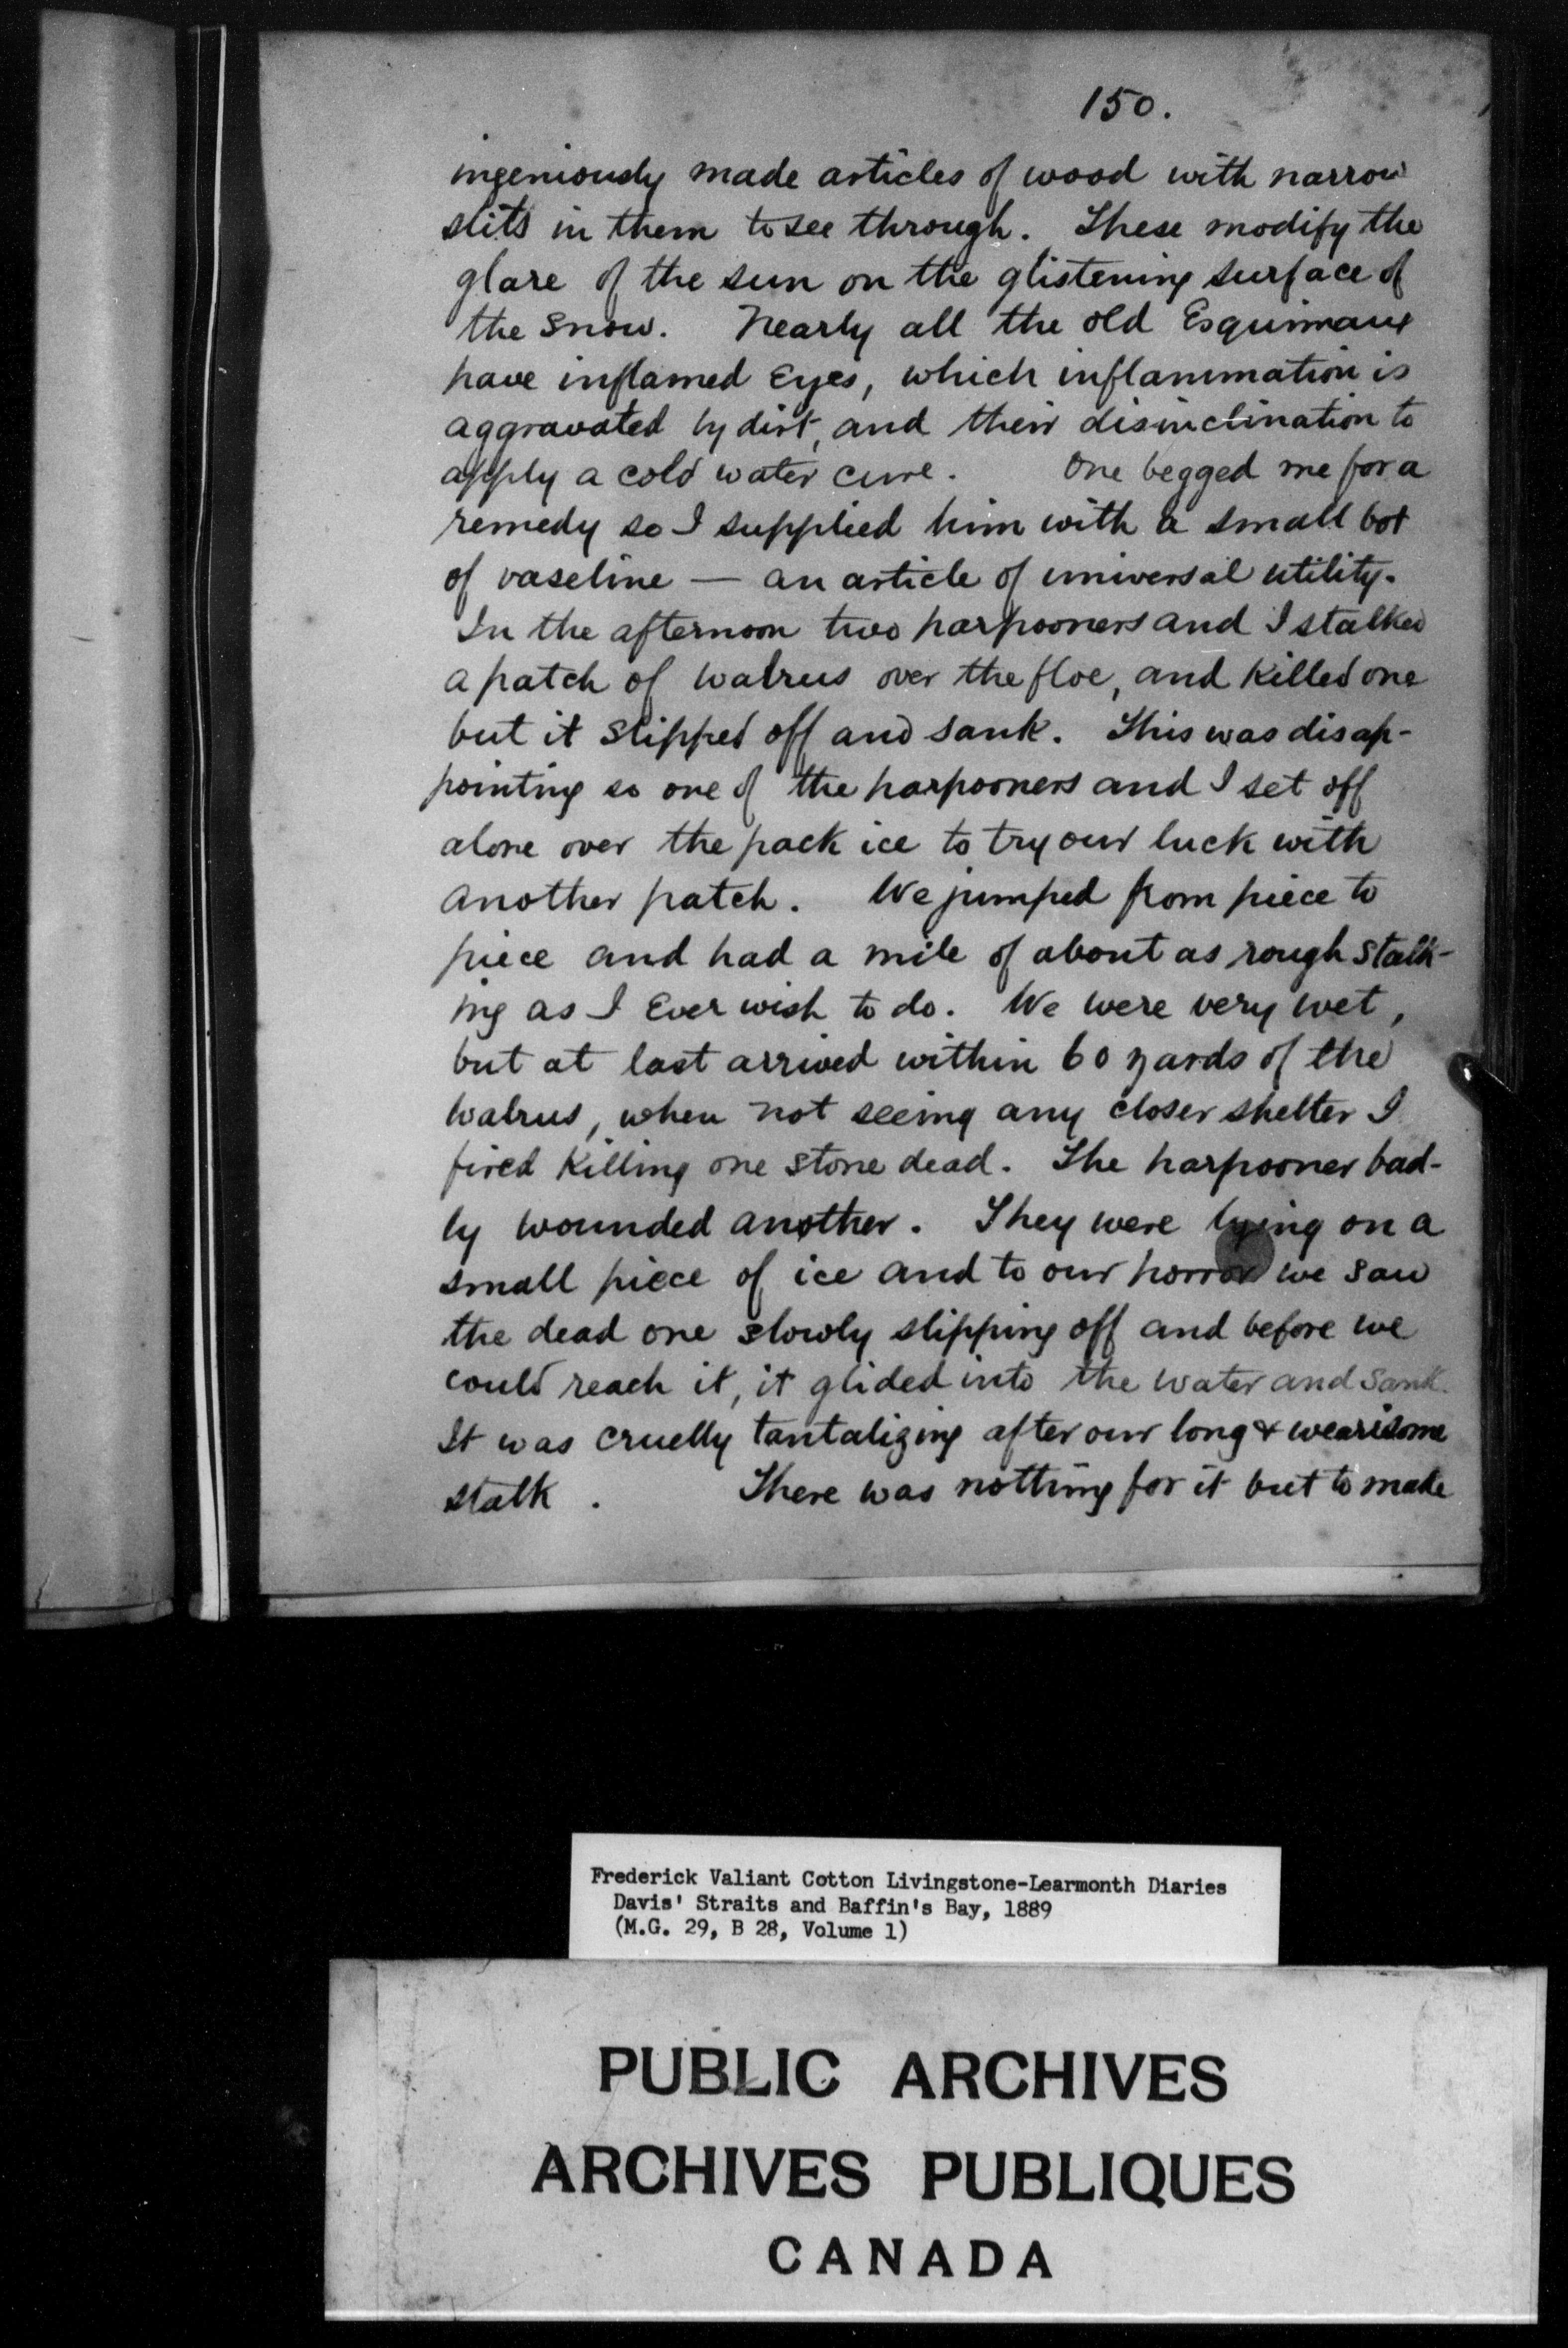 150.
ingeniously made articles of wood with narrow
slits in them to see through. These modify the
glare of the sun on the glistening surface of
the snow. Nearly all the old Esquimaux
have inflamed Eyes, which inflammation is
aggravated by dirt, and their disinclination to
apply a cold water cure. One begged me for a
remedy so I supplied him with a small bot
of vaseline — an article of universal utility.
In the afternoon two harpooners and I stalked
a patch of walrus over the floe, and killed one
but it slipped off and sank. This was disap-
pointing so one of the harpooners and I set off
alone over the pack ice to try our luck with
another patch. We jumped from piece to
piece and had a mile of about as rough stalk-
ing as I Ever wish to do. We were very wet,
but at last arrived within 60 yards of the
walrus, when not seeing any closer shelter I
fired killing one stone dead. The harpooner bad-
ly wounded another. They were lying on a
small piece of ice and to our horror we saw
the dead one slowly slipping off and before we
could reach it, it glided into the water and sank.
It was cruelly tantalizing after our long & wearisome
stalk. There was nothing for it but to make
Frederick Valiant Cotton Livingstone-Learmonth Diaries
Davis' Straits and Baffin's Bay, 1889
(M.G. 29, B 28, Volume 1)
PUBLIC ARCHIVES
ARCHIVES PUBLIQUES
CANADA